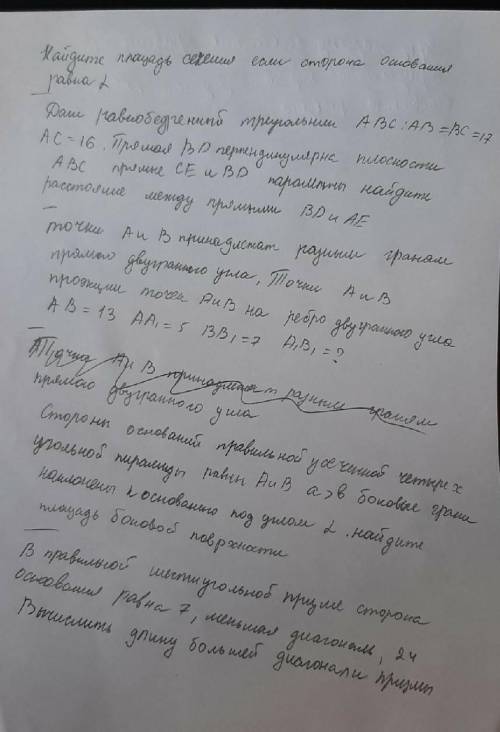 Найдите площадь сечения если сторона основания
равна 2
Дан равнобедренный треугольник ABC: AB=BC=17
AC=16. Прямая BD перпендикулярна плоскости
ABC прямые CE и BD параллельны найдите
расстояние между прямыми BD и AE
точки А и В принадлежат разным граням
прямого двугранного угла, Точки А и В
проэкции точек А и В на ребро двугранного угла
AB = 13 AA₁ = 5 BB₁ = 7 A₁B₁ = ?
Точки А и В принадлежат разным граням
прямого двугранного угла
Стороны оснований правильной усеченной четырех
угольной пирамиды равны А и В а>в боковые грани
наклонены к основанию под углом α. найдите
площадь боковой поврхности
В правильной шестиугольной призме сторона
основания равна 7, меньшая диагональ, 24
Вычислить длину большей диагонали призмы